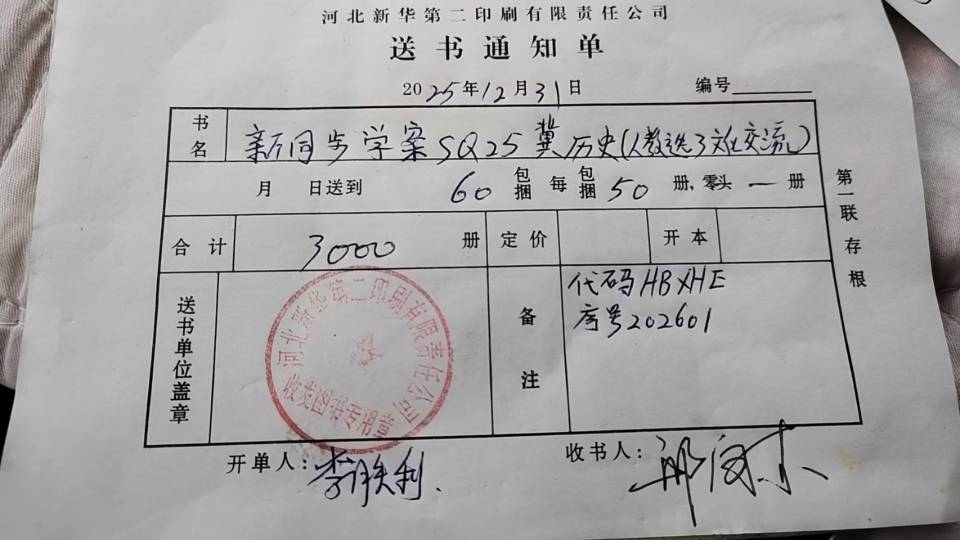 河北新华第二印刷有限责任公司
送书通知单
2025年12月31日 编号
书名 新同步学案SQ25冀历史(人教选了文社交流)
月 日送到 60 包捆 每 包捆 50 册,零头 一 册
合计 3000 册 定价 开本
第一联存根
送书单位盖章
河北新华第二印刷有限责任公司
收发图书专用章
备注
代码HBXHE
序号202601
开单人:李胜利
收书人: